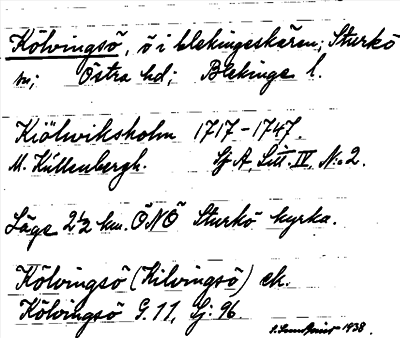 Kölvingsö, ö i blekingeskären; Sturkö
sn; Östra hd; Blekinge l.
Kiölwiksholm 1717-1747.
M. Kúllenbergh. Sj A, Litt. IV, N:o 2.
Läge 2 1/2 km. ÖNÖ Sturkö kyrka.
Kölvingsö (Kilvingsö) ek.
Kölvingsö G. 11, Sj: 96.
1938.